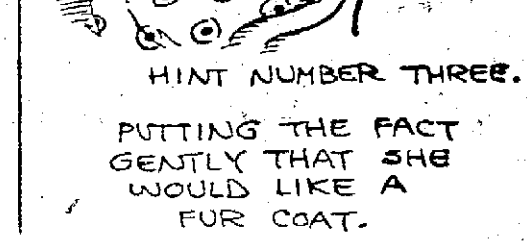 HINT NUMBER THREE.
PUTTING THE FACT
GENTLY THAT SHE
WOULD LIKE A
FUR COAT.